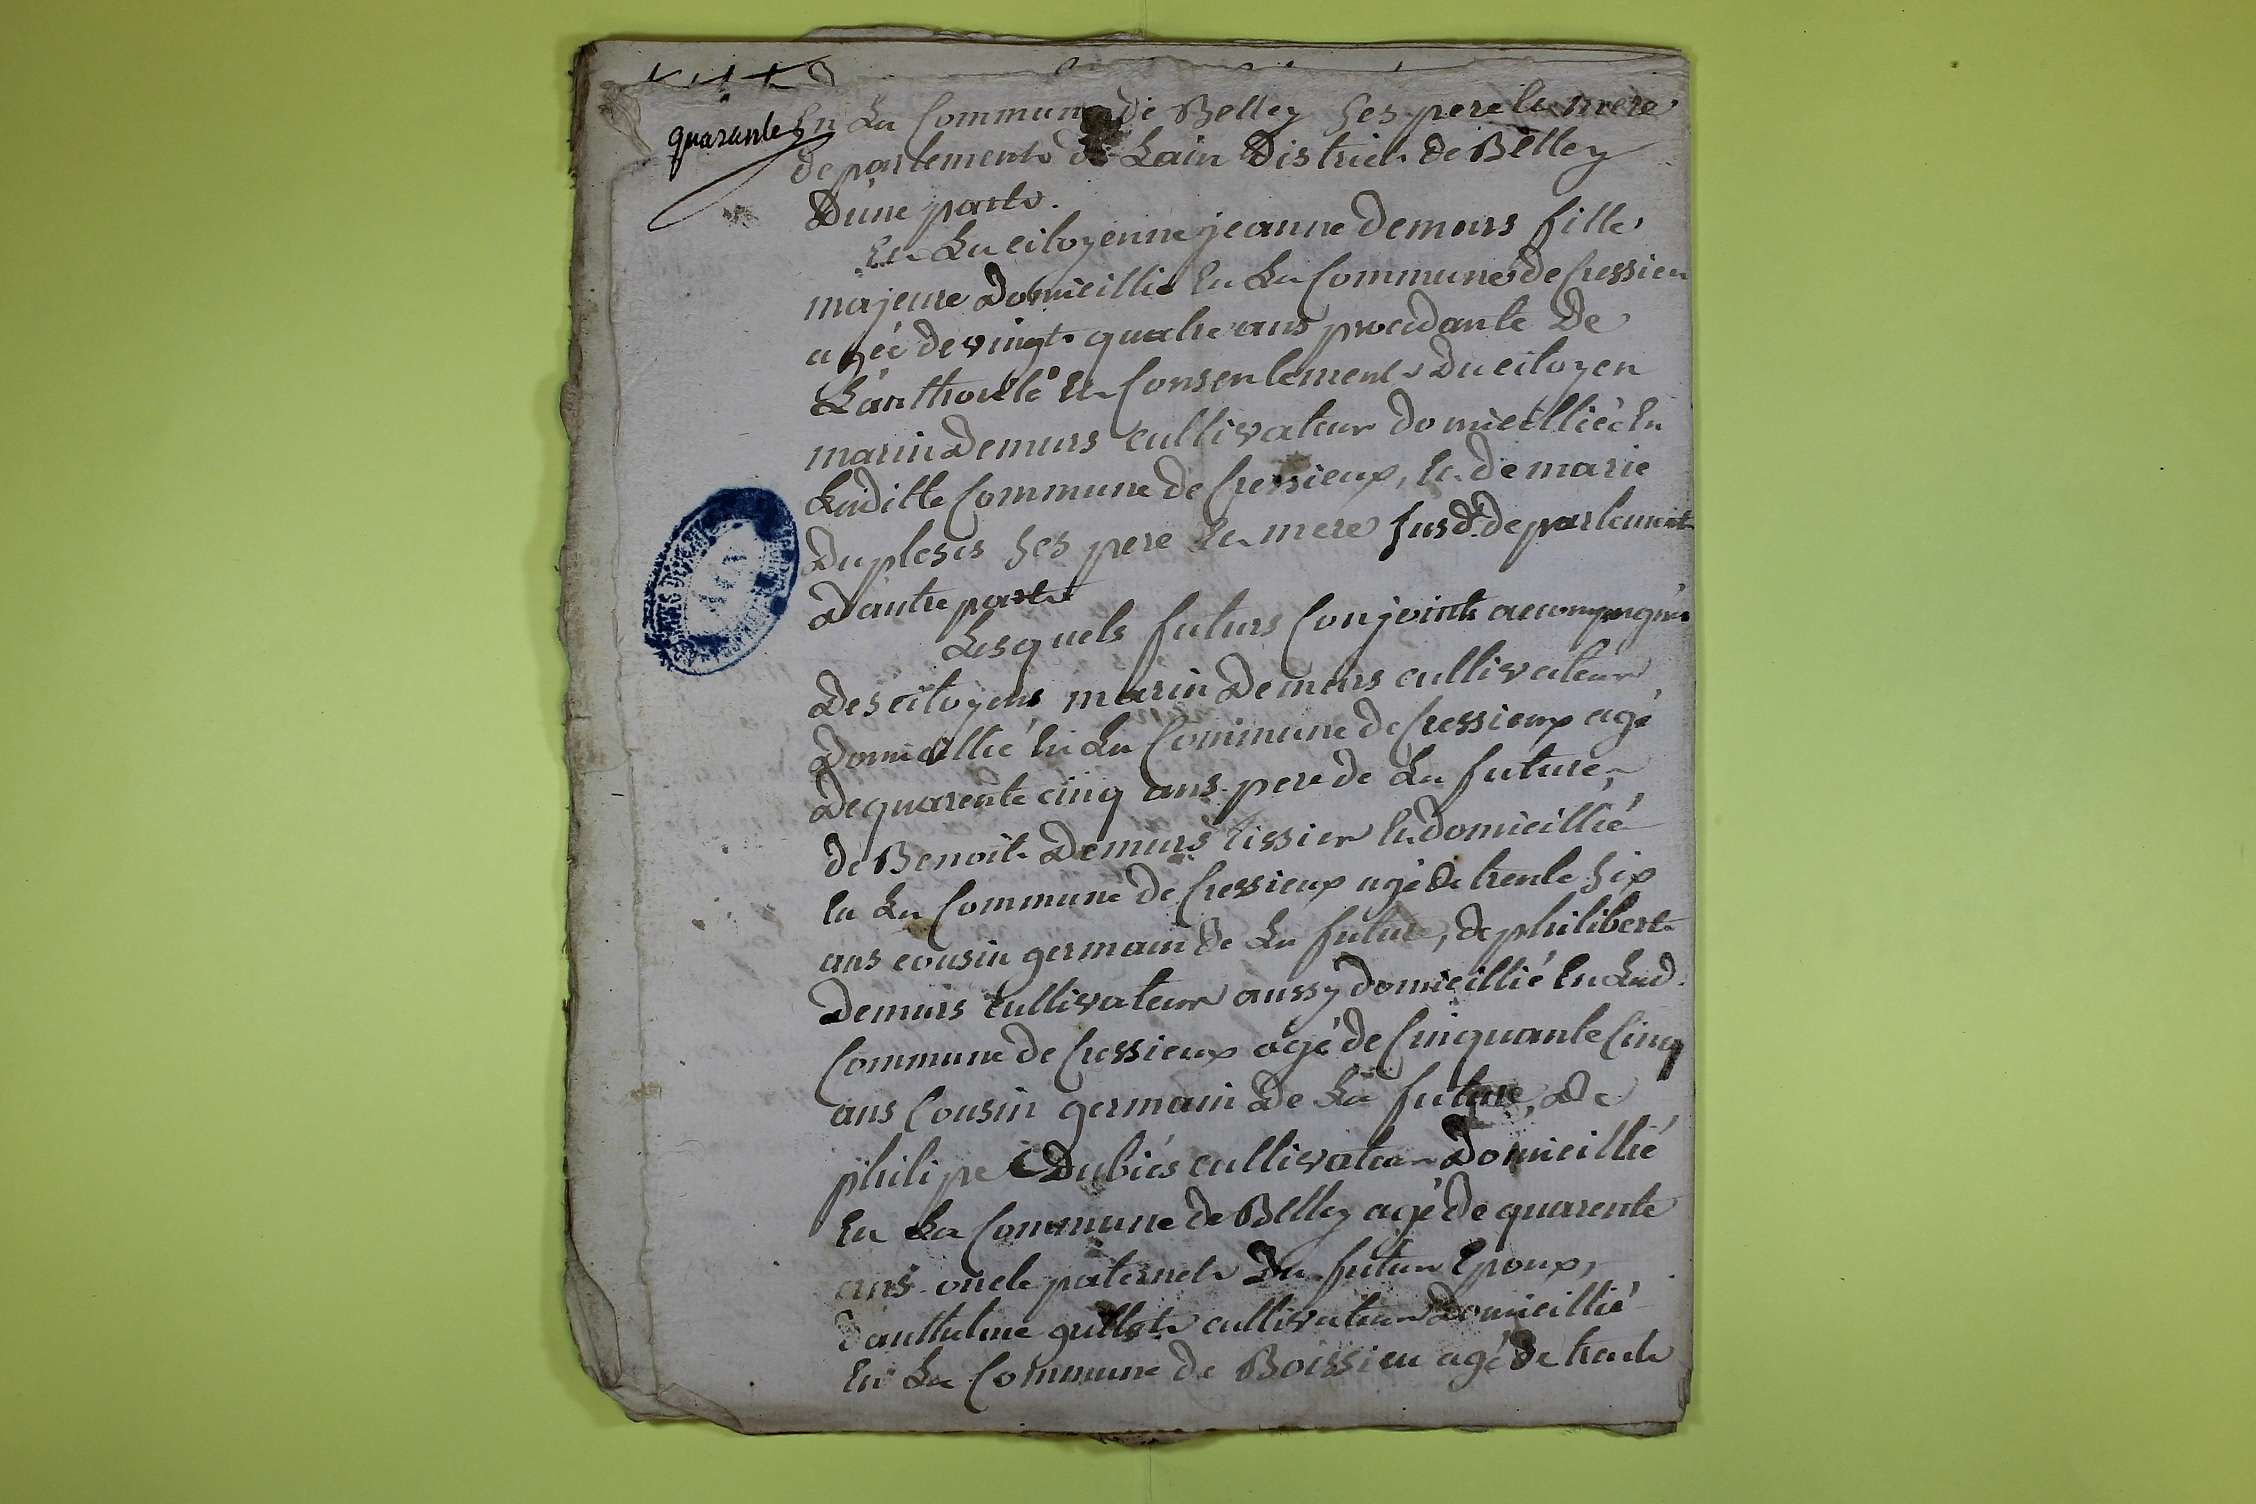 quarante
En La Commune de Belley Ses pere Et mere
departement de Lain District de Belley
D'une part.
Et La citoyenne jeanne Demurs fille
majeure Domicillié En La Commune de Cressieu
agéé de vingt quatre ans procédante De
L'authorité Et Consentement Du citoyen
marin Demurs cultivateur Domicillié En
Laditte Commune de Cressieux, Et De marie
Duplesis Ses pere Et mere Susd. departement
D'autre part
Lesquels futurs Conjoints accompagnés
Des citoyens marin Demurs cultivateur
Domicillié En La Commune de Cressieux agé
De quarente cinq ans pere de La future,
de Benoit Demurs tissier Et domicillié
En La Commune de Cressieux agé de trente Six
ans cousin germain de La future, de philibert
Demurs cultivateur aussy domicillié En Lad.
Commune de Cressieux agé de Cinquante Cinq
ans Cousin germain De La future, De
philipe Dubiés cultivateur Domicillié
En La Commune de Belley agé de quarente
ans oncle paternel Du futur Epoux,
D'anthelme gullot cultivateur Domicillié
En La Commune de Boissieu agé de trente